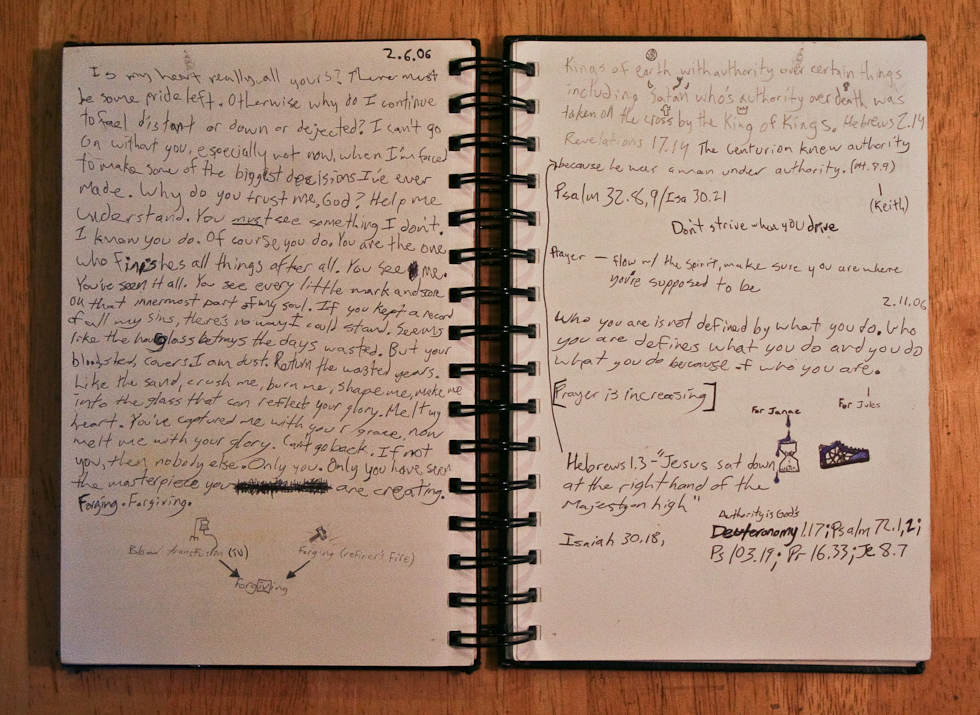 2.6.06
Is my heart really all yours? There must
be some pride left. Otherwise why do I continue
to feel distant or down or dejected? I can't go
on without you, especially not now, when I'm forced
to make some of the biggest decisions I've ever
made. Why do you trust me, God? Help me
understand. You must see something I don't.
I know you do. Of course you do. You are the one
who finishes all things after all. You see me.
You've seen it all. You see every little mark and score
on that innermost part of my soul. If you kept a record
of all my sins, there's no way I could stand. Seems
like the hourglass betrays the days wasted. But your
bloodshed, covers. I am dust. Return the wasted years.
Like the sand, crush me, burn me, shape me, make me
into the glass that can reflect your glory. Melt my
heart. You've captured me with your grace, now
melt me with your glory. Can't go back. If not
you, then nobody else. Only you. Only you have seen
the masterpiece you are creating.
Forging. Forgiving.
Blood transfusion (IV)
Forging (refiner's fire)
Forgiving
Kings of earth with authority over certain things
including Satan who's authority over death was
taken at the cross by the King of Kings. Hebrews 2.14
Revelations 17.14 The centurion knew authority
because he was a man under authority. (Mt. 8.9)
Psalm 32.8,9/Isa 30.21
(Keith)
Don't strive when you drive
Prayer — flow w/ the spirit, make sure you are where
you're supposed to be
2.11.06
Who you are is not defined by what you do. Who
you are defines what you do and you do
what you do because of who you are.
[Prayer is increasing]
For Janae
For Jules
Hebrews 1.3 - "Jesus sat down
at the right hand of the
Majesty on high"
Authority is God's
Deuteronomy 1.17; Psalm 72.1,2;
Isaiah 30.18,
Ps 103.19; Pr 16.33; Je 8.7